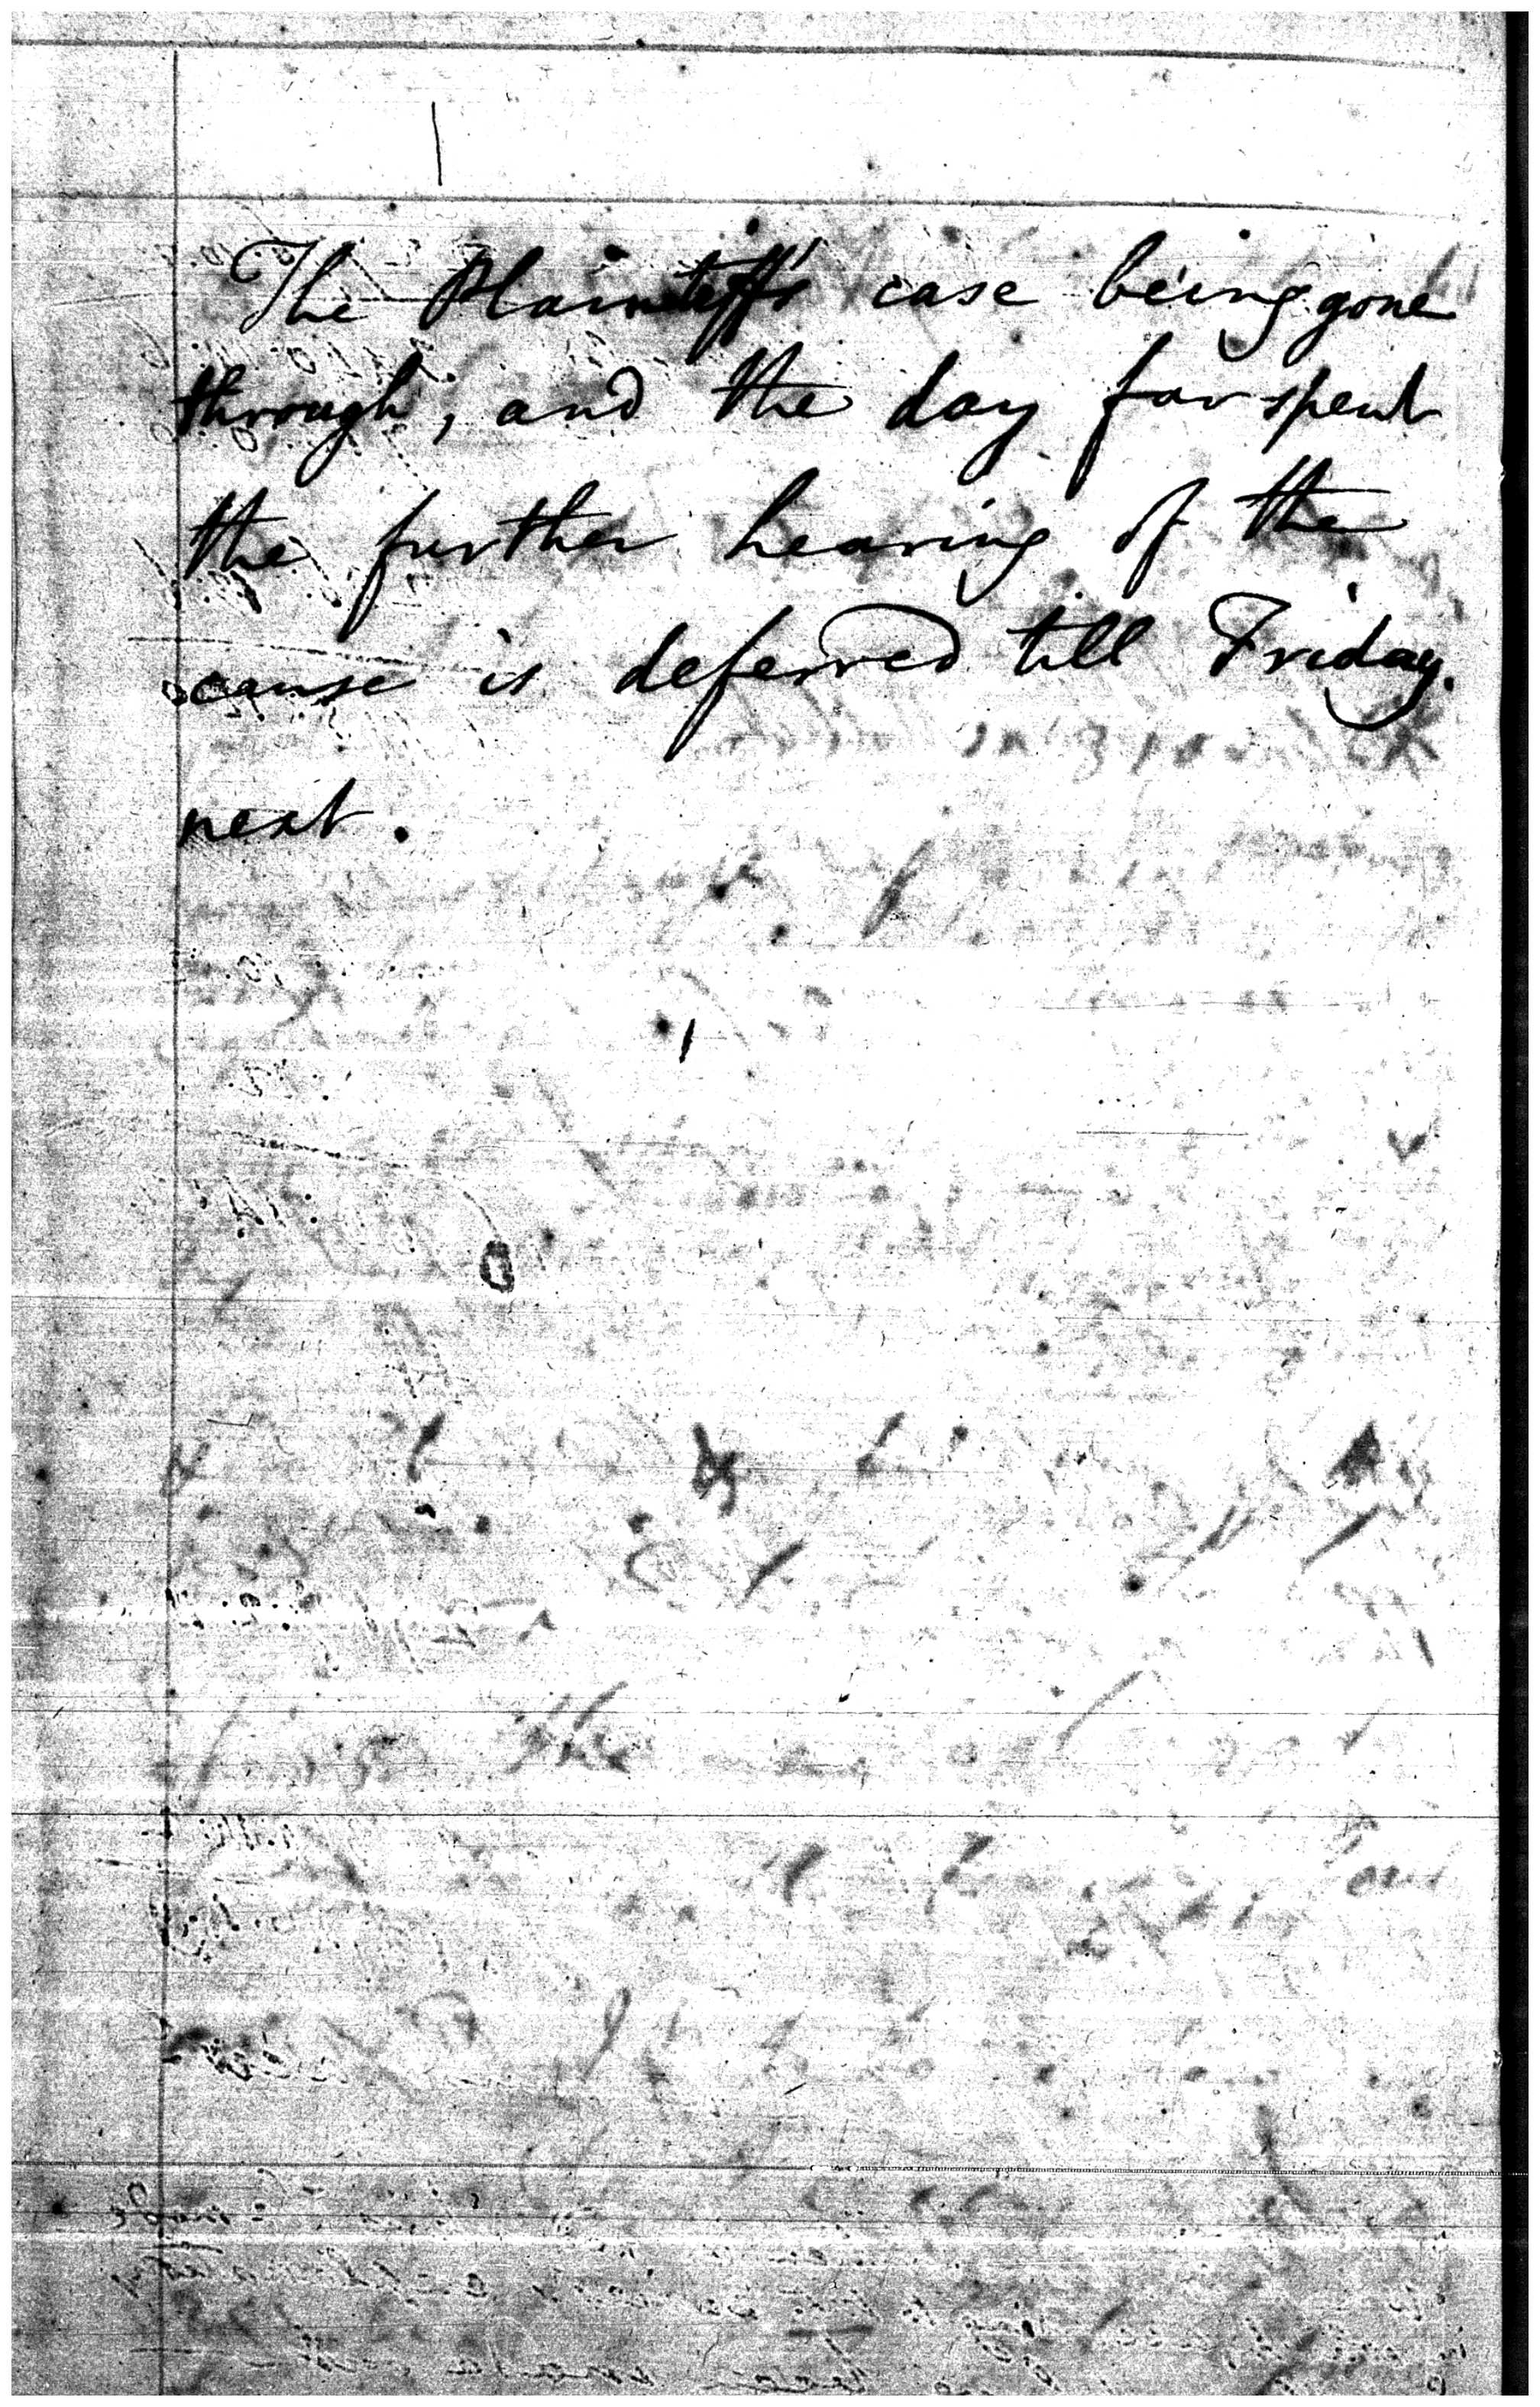 The Plaintiff's case being gone
through, and the day far spent
the further hearing of the
cause is deferred till Friday.
next.